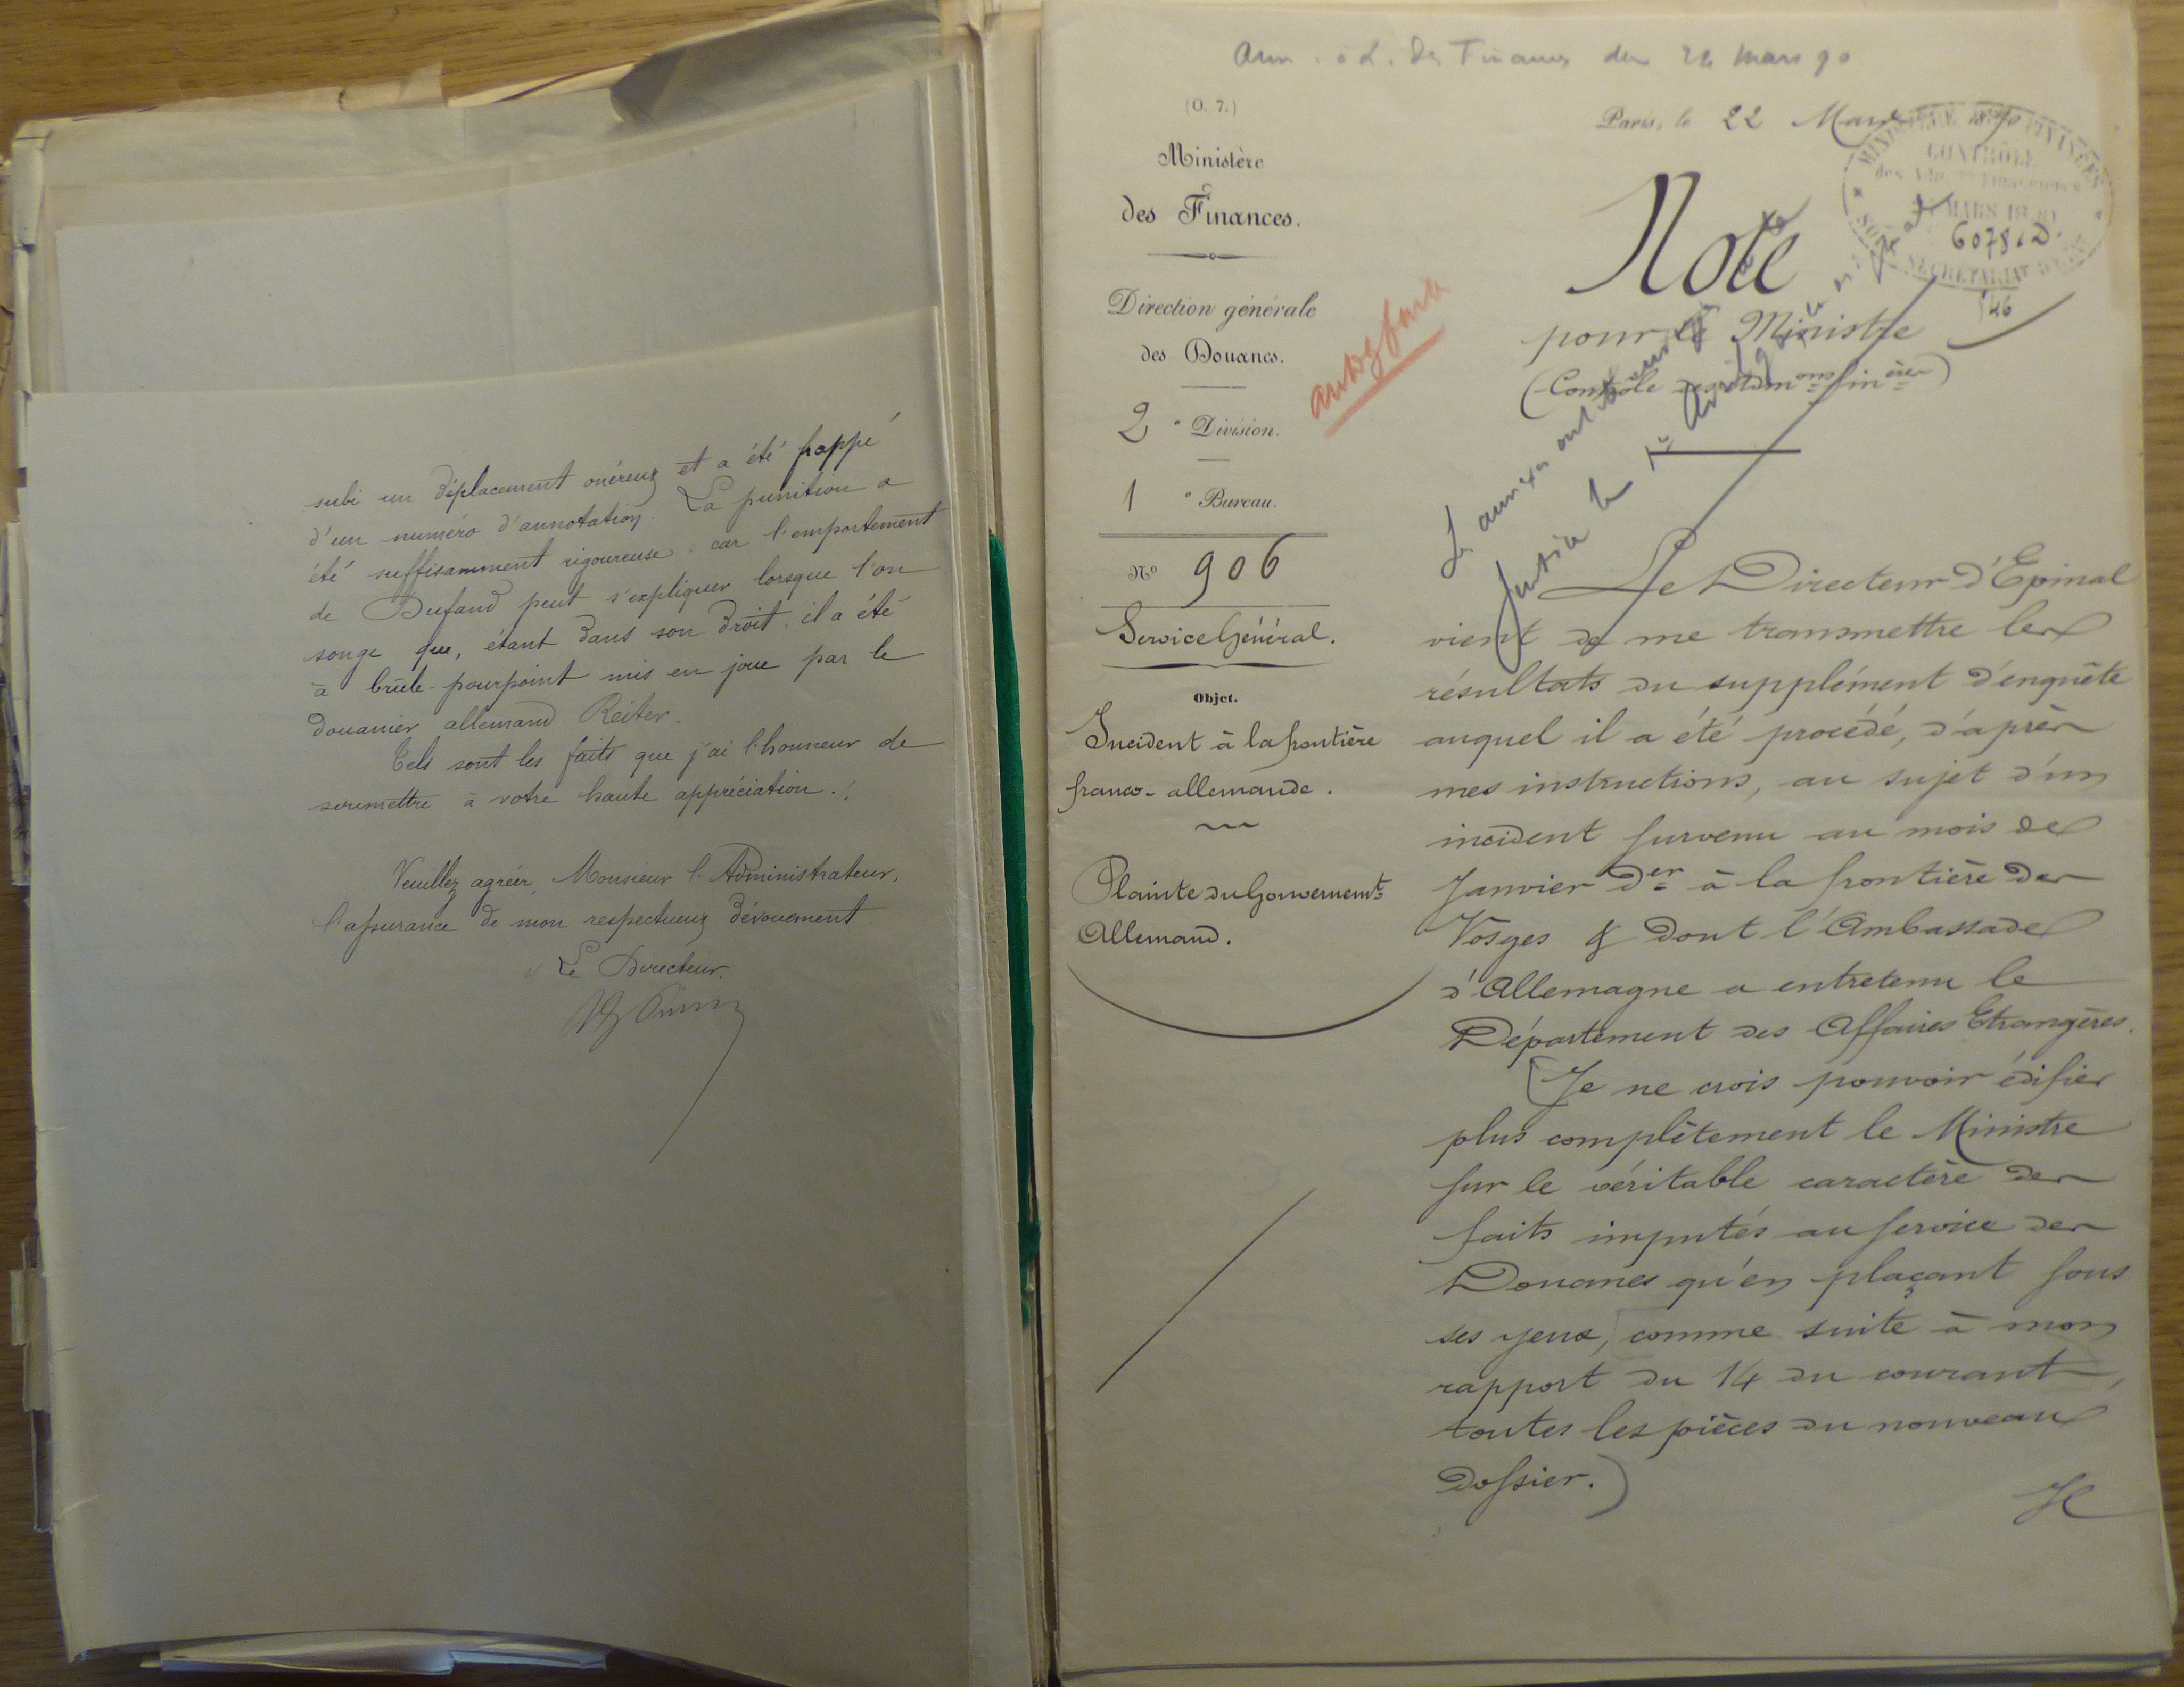 subi un déplacement onéreux et a été frappé
d'un numéro d'annotation. La punition a
été suffisamment rigoureuse, car l'emportement
de Dufaud peut s'expliquer lorsque l'on
songe que, étant dans son droit, il a été
à brûle-pourpoint mis en joue par le
douanier allemand Reiter.
Tels sont les faits que j'ai l'honneur de
soumettre à votre haute appréciation ./.
Veuillez agréer, Monsieur l'Administrateur,
l'assurance de mon respectueux dévouement
Le Directeur.
Ann. à L. des Finances du 24 mars 90
(O. 7.)
Ministère
des Finances.
Direction générale
des Douanes.
2e Division.
1e Bureau.
No 906
Service Général.
Objet.
Incident à la frontière
franco-allemande.
Plainte du Gouvernemt
Allemand.
Paris, le 22 Mars 1890
MINISTÈRE DES FINANCES
CONTRÔLE
MARS 1890
6078.D.
SOUS SECRÉTARIAT D'ÉTAT
146
Note
pour le Ministre
(Contrôle des Admons finères)
Les annexes ont été
Justice le 1er Avril
Le Directeur d'Epinal
vient de me transmettre les
résultats du supplément d'enquête
auquel il a été procédé, d'après
mes instructions, au sujet d'un
incident survenu au mois de
Janvier der à la frontière des
Vosges & dont l'Ambassade
d'Allemagne a entretenu le
Département des Affaires Etrangères.
(Je ne crois pouvoir édifier
plus complètement le Ministre
sur le véritable caractère des
faits imputés au service des
Douanes qu'en plaçant sous
ses yeux, comme suite à mon
rapport du 14 du courant,
toutes les pièces du nouveau
dossier.)